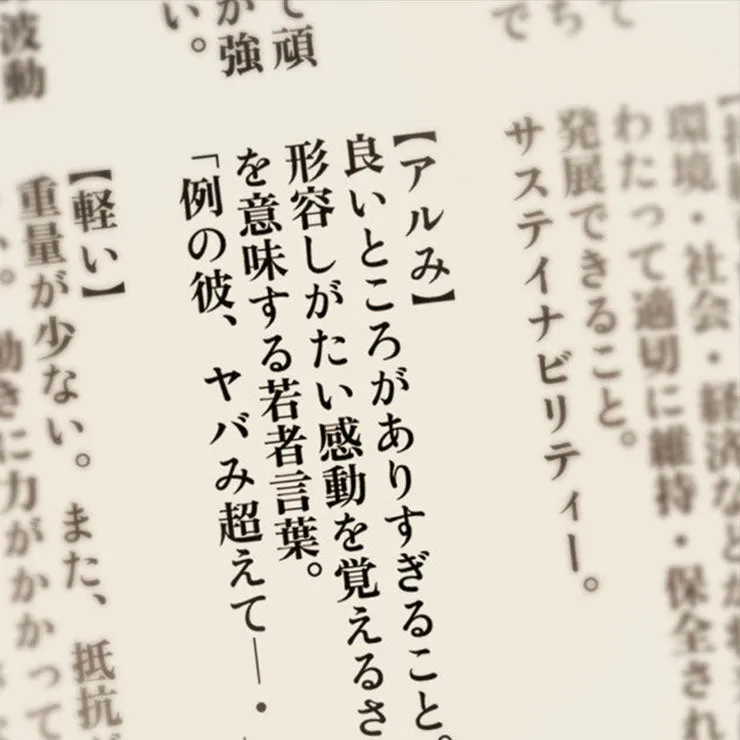 環境・社会・経済など
わたって適切に維持・保全され
発展できること。
サスティナビリティー。
て
ち
で
【アルみ】
良いところがありすぎること。
形容しがたい感動を覚えるさ
を意味する若者言葉。
「例の彼、ヤバみ超えて―・
て頑
が強
い。
【軽い】
重量が少ない。また、抵抗が
い。動きに力がかかって
波動